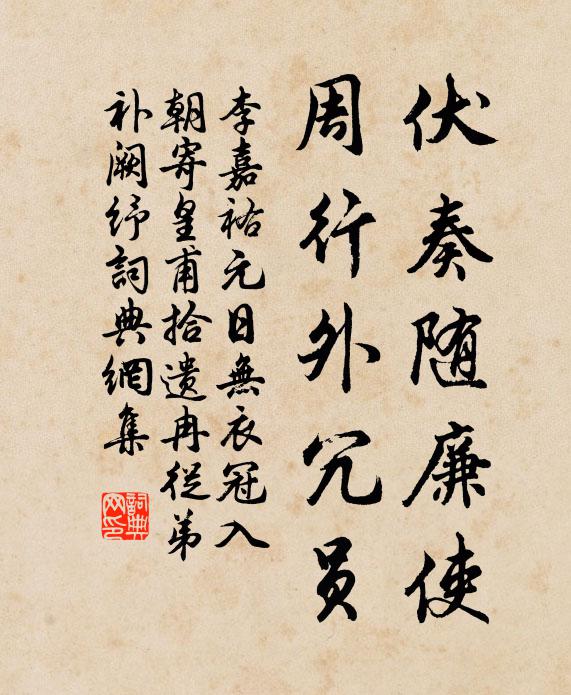 伏奏随廉使
周行外冗员
李嘉祐元日無衣冠入
朝寄皇甫拾遗冉從弟
补阙纾詞典網集
詞典
网印